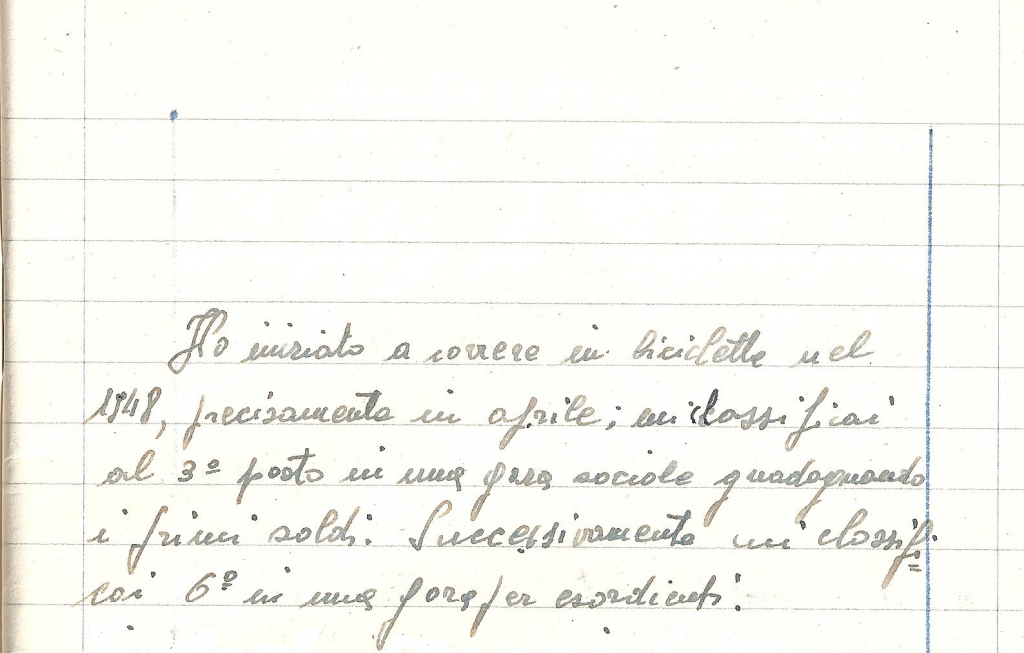 Ho iniziato a correre in bicicletta nel
1948, precisamente in aprile; mi classificai
al 3º posto in una gara sociale guadagnando
i primi soldi. Successivamente mi classifi=
cai 6º in una gara per esordienti.